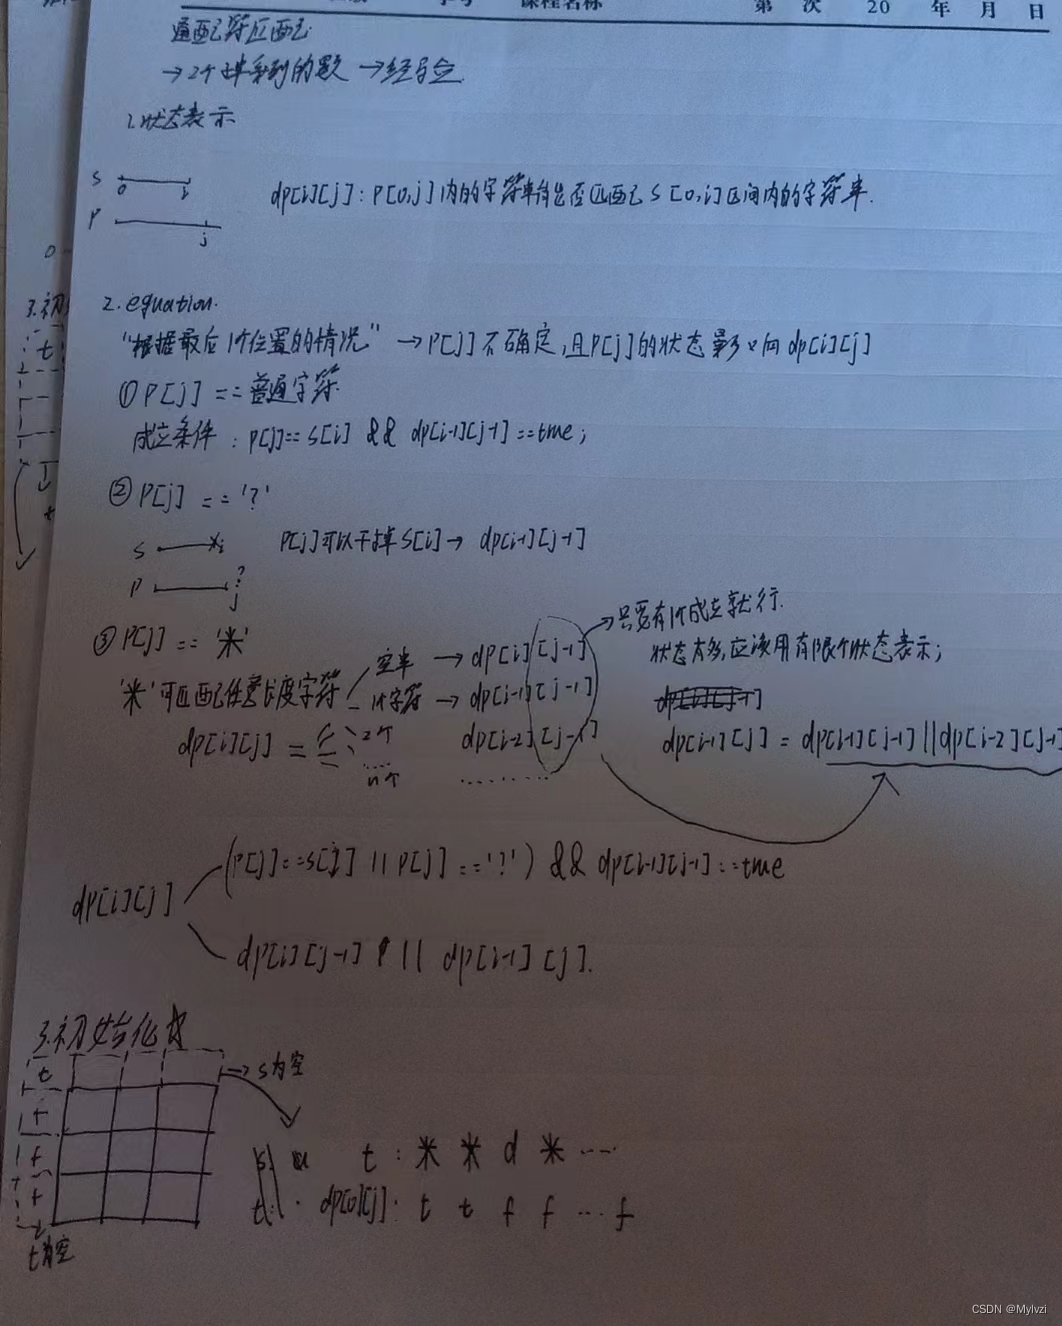 课程名称 第 次 20 年 月 日
通配符匹配
→2个串系列的题 →经验
1.状态表示
s 0 i
p j
dp[i][j]: P[0,j]内的字符串能否匹配 S[0,i]区间内的字符串.
2. equation.
"根据最后1个位置的情况" → P[j] 不确定,且P[j]的状态影响 dp[i][j]
① P[j] == 普通字符
成立条件 : p[j]== s[i] && dp[i-1][j-1]==true;
② P[j] == '?'
s i P[j]可以干掉S[i]→ dp[i-1][j-1]
p ? j
③ P[j] == '*'
→只要有1个成立就行.
状态太多,应该用有限个状态表示;
'*'可匹配任意长度字符
空串 → dp[i][j-1]
1个字符 → dp[i-1][j-1]
2个 dp[i-2][j-1]
n个 ........
dp[i][j] =
dp[i-1][j] = dp[i-1][j-1] || dp[i-2][j-1
dp[i][j]
(P[j]==s[j] || P[j]=='?') && dp[i-1][j-1]==true
dp[i][j-1] || dp[i-1][j].
3.初始化
t → s为空
f
f
f
t为空
t : * * d * ...
dp[0][j]: t t f f ... f
3.初
CSDN @Mylvzi